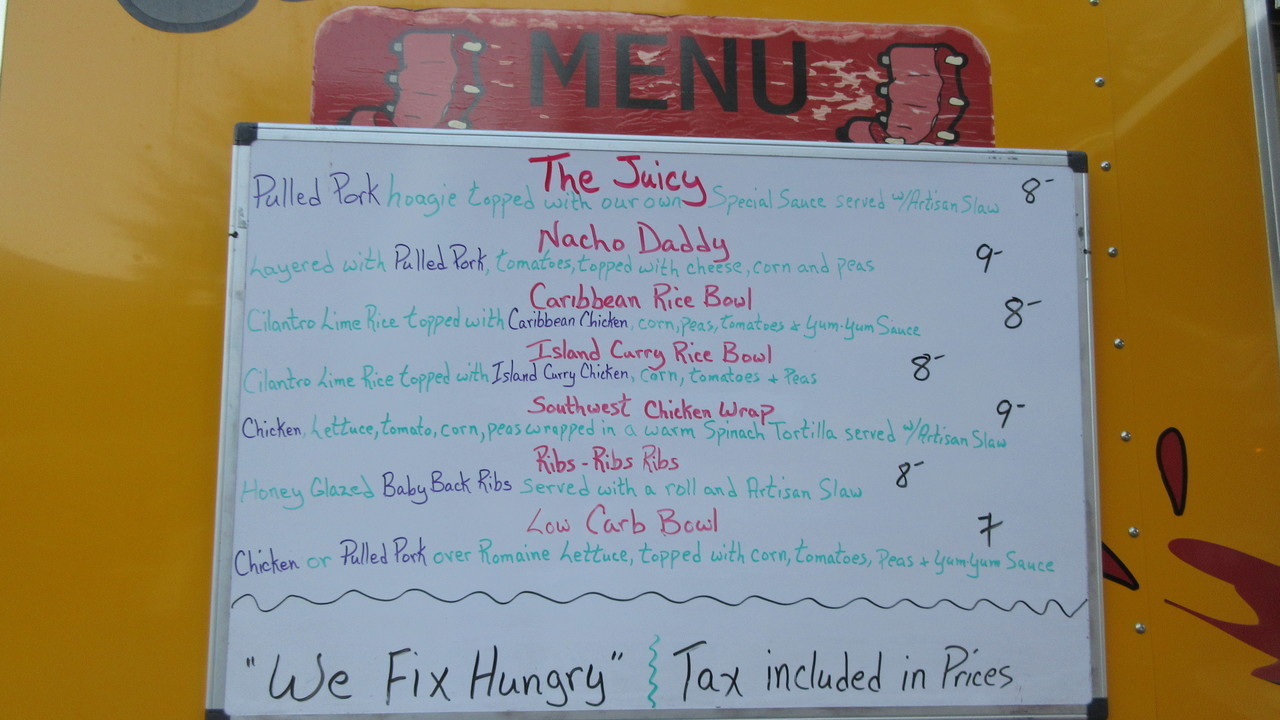 MENU
The Juicy
Pulled Pork hoagie topped with our own Special Sauce served w/Artisan Slaw 8-
Nacho Daddy
Layered with Pulled Pork, tomatoes, topped with cheese, corn and peas 9-
Caribbean Rice Bowl
Cilantro Lime Rice topped with Caribbean Chicken, corn, peas, tomatoes + Yum-Yum Sauce 8-
Island Curry Rice Bowl
Cilantro Lime Rice topped with Island Curry Chicken, corn, tomatoes + Peas 8-
Southwest Chicken Wrap
Chicken, Lettuce, tomato, corn, peas wrapped in a warm Spinach Tortilla served w/Artisan Slaw 9-
Ribs - Ribs Ribs
Honey Glazed Baby Back Ribs Served with a roll and Artisan Slaw 8-
Low Carb Bowl
Chicken or Pulled Pork over Romaine Lettuce, topped with corn, tomatoes, Peas + Yum-Yum Sauce 7
"We Fix Hungry" Tax included in Prices